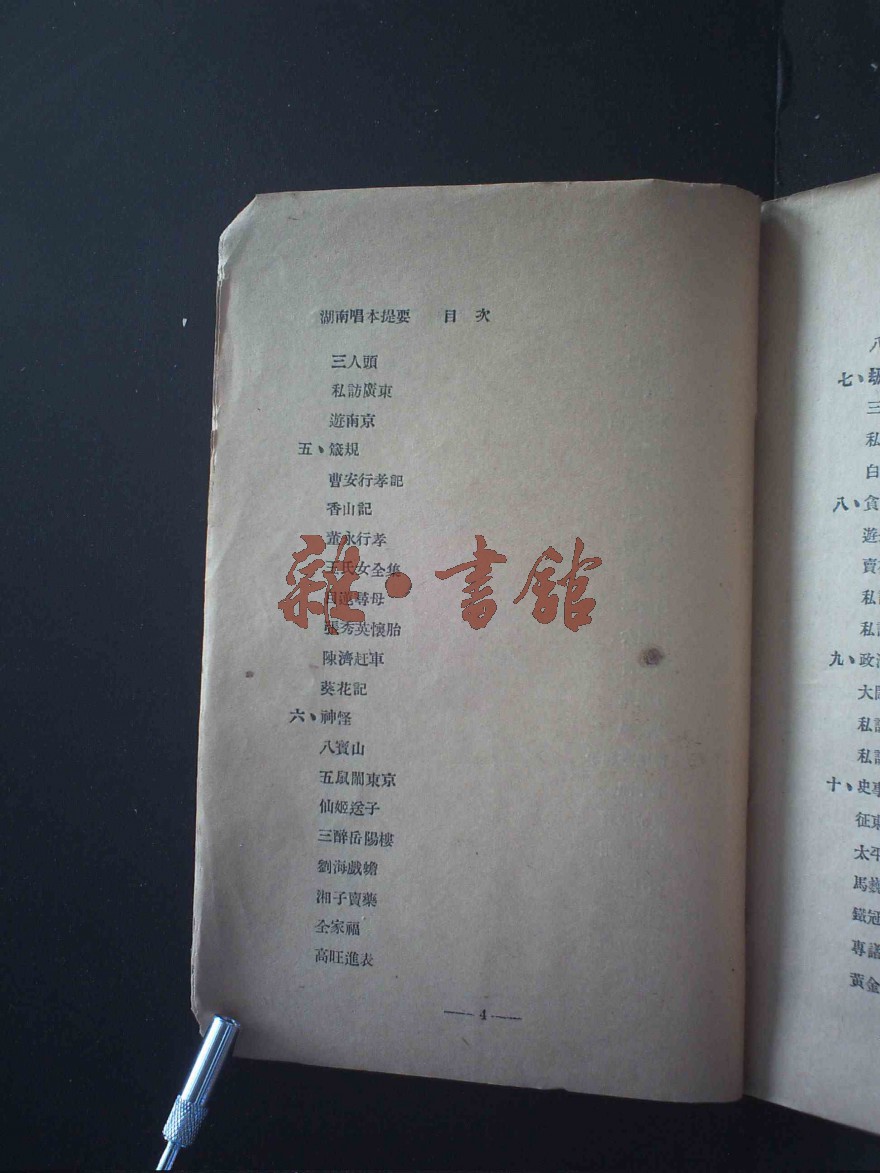 湖南唱本提要 目次
三人頭
私訪廣東
遊南京
五、箴規
曹安行孝記
香山記
董永行孝
王氏女全集
目連尋母
張秀英懷胎
陳濟赶車
葵花記
六、神怪
八寳山
五鼠鬧東京
仙姬送子
三醉岳陽樓
劉海戲蟾
湘子賣藥
全家福
高旺進表
—4—
雜·書舘
八
七、
三
私
白
八、貪
遊
賣
私
私
九、政
大
私
私
十、史
征東
太平
馬
鐵冠
專諸
黃金